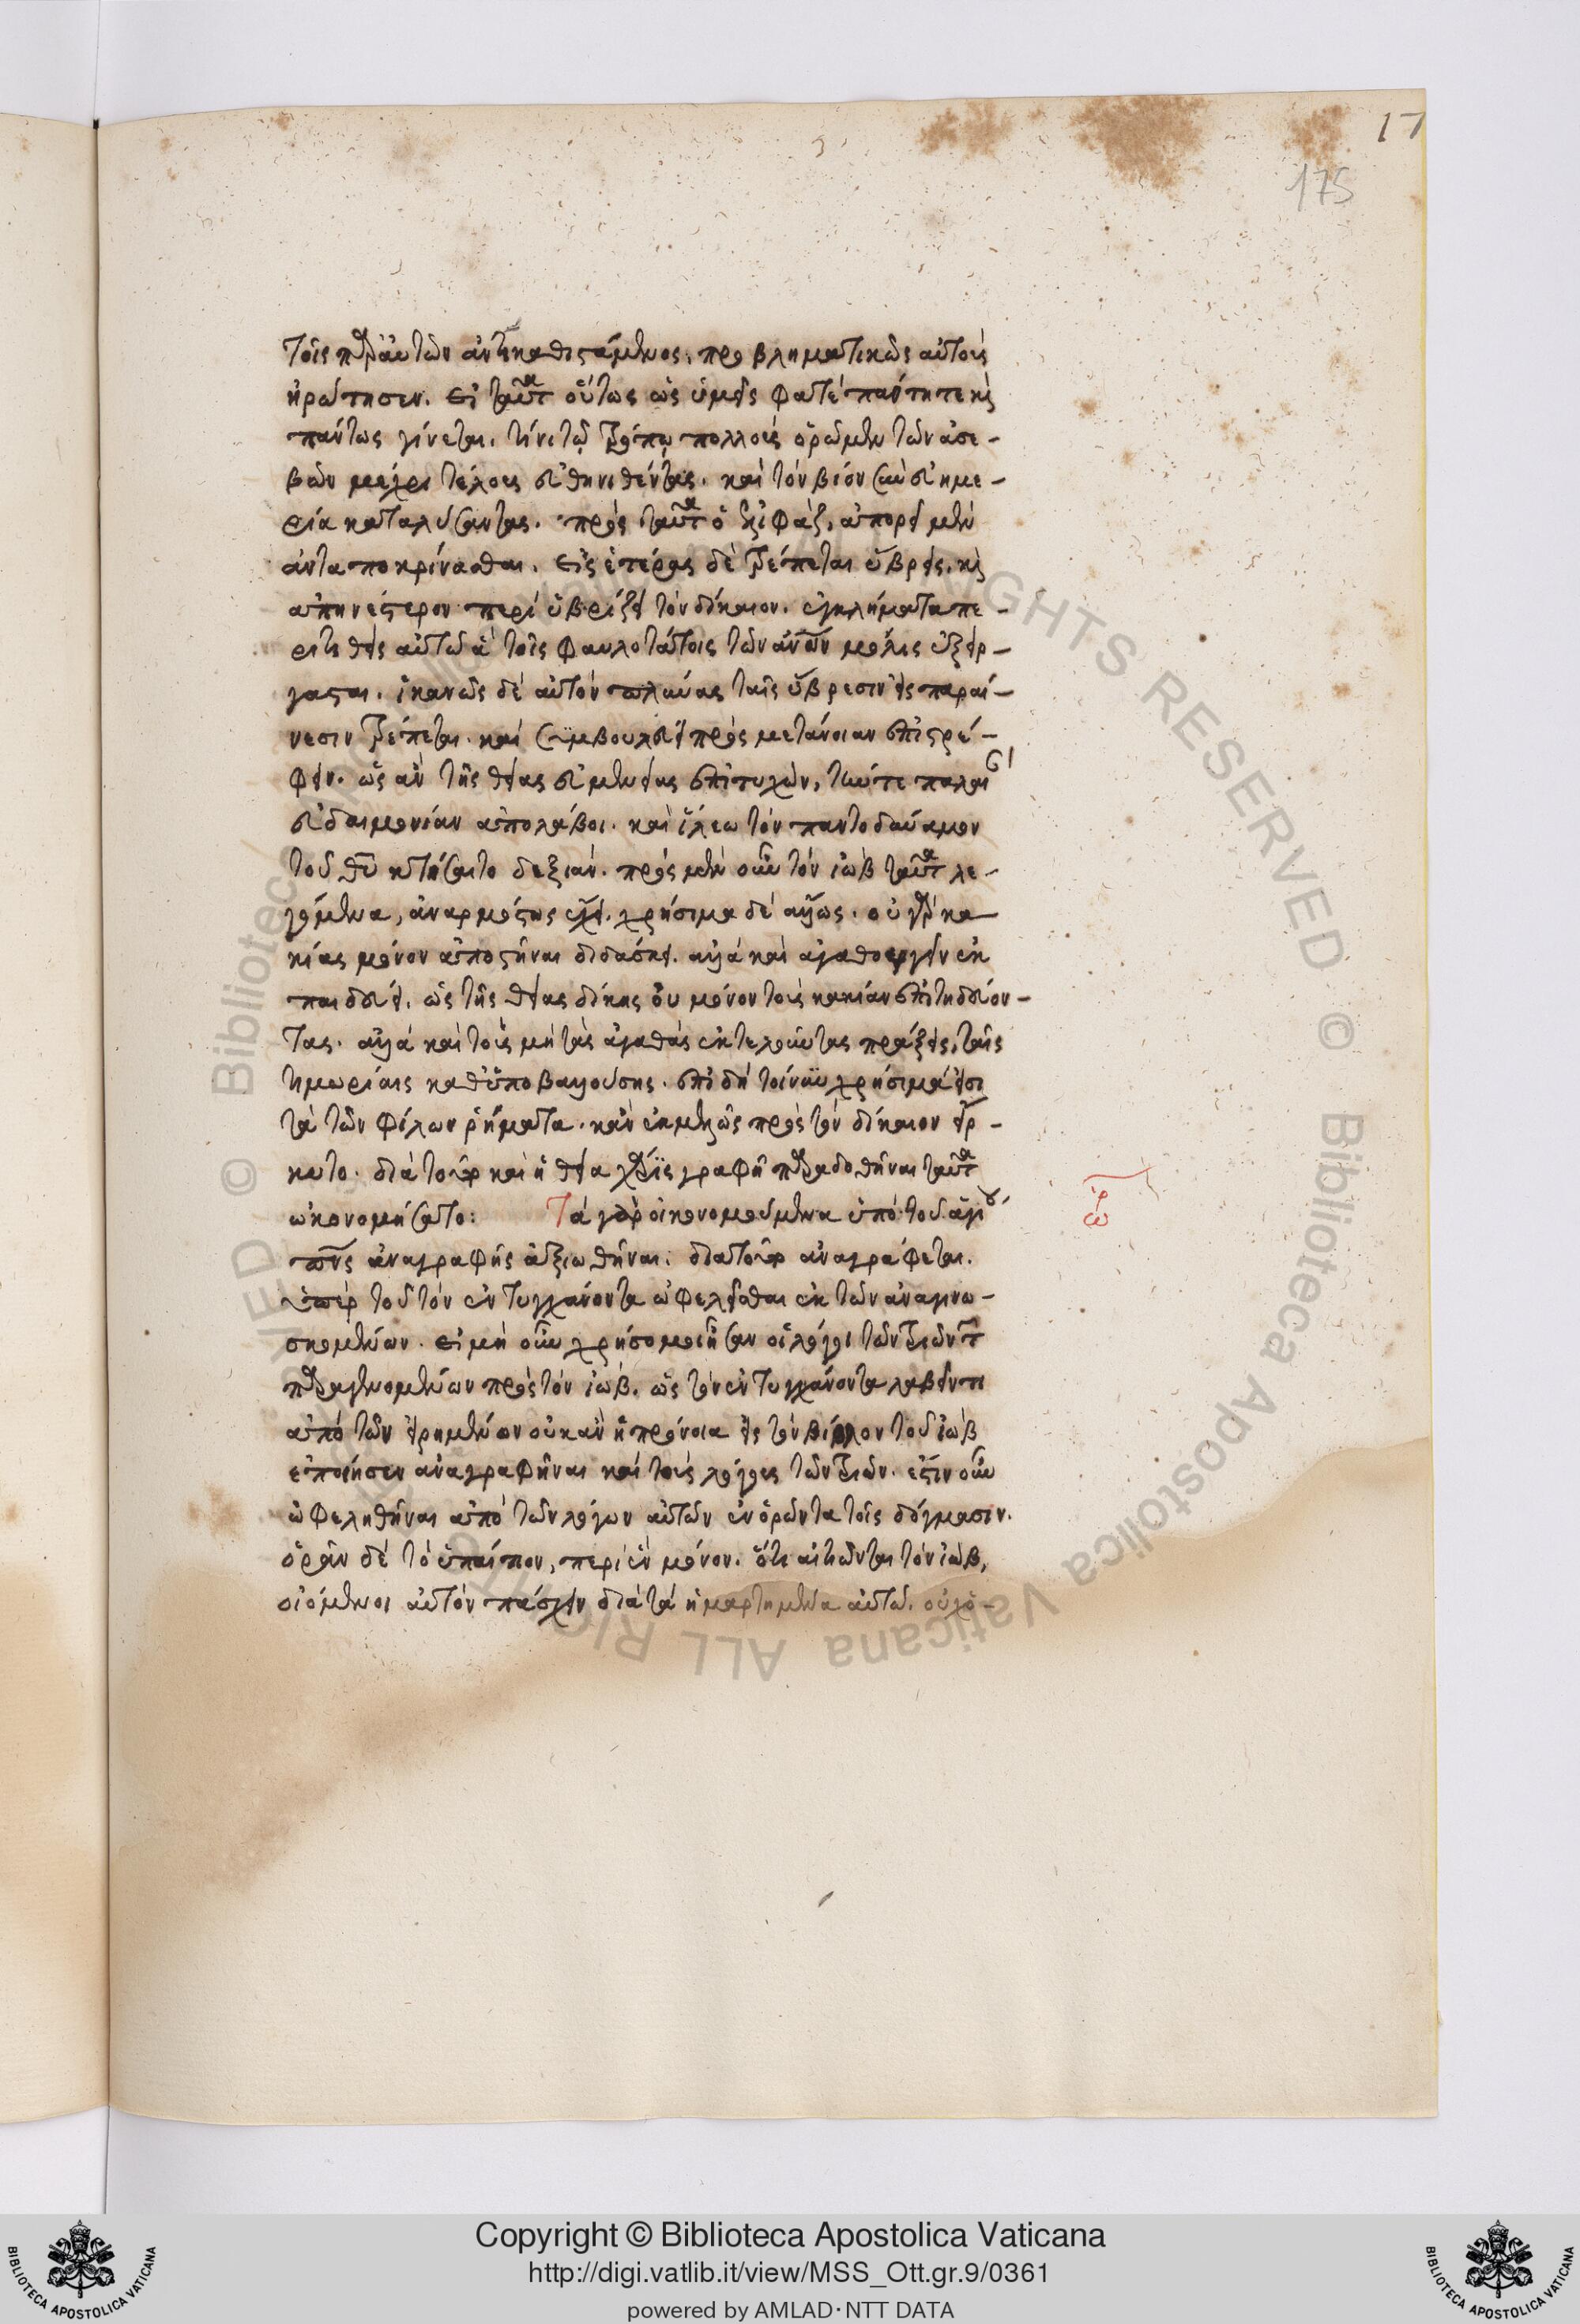 17
175
τοῖς παρ' αὐτῶν ἀντικαθιστάμενος, προβληματικῶς αὐτοὺς
ἠρώτησεν. εἰ ταῦτα οὕτως ὡς ὑμεῖς φατὲ πάντη τε κỳ
πάντως γίνεται, τίνι τῷ τρόπῳ πολλοὺς ὁρῶμεν τῶν ἀσε-
βῶν μέχρι τέλους εὐθηνηθέντας. καὶ τὸν βίον σὺν εὐημε-
ρία καταλύσαντας. πρὸς ταῦτα ὁ ἐλιφὰζ, ἀπορεῖ μὲν
ἀνταποκρίνασθαι. εἰς ἑτέρας δὲ τρέπεται ὕβρεις, κỳ
ἀπηνέστερον περιυβρίζει τὸν δίκαιον. ἐγκλήματα πε-
ριτιθεὶς αὐτῶ ἃ τοῖς φαυλοτάτοις τῶν ἀνων μόλις ἐξείρ-
γασται. ἱκανῶς δὲ αὐτὸν πλύνας ταῖς ὕβρεσιν εἰς παραί-
νεσιν τρέπεται. καὶ συμβουλεύει πρὸς μετάνοιαν ἐπιστρέ-
φειν. ὡς ἂν τῆς θείας εὐμενείας ἐπιτυχὼν, τήν τε πάλαι
εὐδαιμονίαν ἀπολάβοι. καὶ ἵλεω τὸν παντοδύναμον
τοῦ θυ κτήσαιτο δεξιάν. πρὸς μὲν οὖν τὸν ἰὼβ ταῦτα λε-
γόμενα, ἀναρμόστως ἔχει. χρήσιμα δὲ ἄλλως. οὐ γὰρ κα-
κίας μόνον ἀποστῆναι διδάσκει. ἀλλὰ καὶ ἀγαθοεργεῖν ἐκ
παιδεύει. ὡς τῆς θείας δίκης οὐ μόνον τοὺς κακίαν ἐπιτηδεύον-
τας. ἀλλὰ καὶ τοὺς μὴ τὰς ἀγαθὰς ἐκτελοῦντας πράξεις, ταῖς
τιμωρίαις καθυποβαλλούσης. ἐπειδὴ τοίνυν χρήσιμά εἰσι
τὰ τῶν φίλων ῥήματα. κἂν ἐκμελῶς πρὸς τὸν δίκαιον εἴρ-
κατο. διὰ τοῦτο καὶ ἡ θεία χάρις γραφῆ παραδοθῆναι ταῦτα
ὠκονομήσατο: Τὰ γὰρ οἰκονομούμενα ὑπὸ τοῦ ἁγίου
πνς ἀναγραφῆς ἀξιωθῆναι. διὰ τοῦτο ἀναγράφεται.
ὑπὲρ τοῦ τὸν ἐντυγχάνοντα ὠφελεῖσθαι ἐκ τῶν ἀναγινω-
σκομένων. εἰ μὴ οὖν χρήσιμοι ἦσαν οἱ λόγοι τῶν τριῶν τῶν
παραγενομένων πρὸς τὸν ἰὼβ. ὡς τὸν ἐντυγχάνοντα λαβεῖν τι
ἀπὸ τῶν εἰρημένων οὐκ ἂν ἡ πρόνοια εἰς τὴν βίβλον τοῦ ἰὼβ
ἐποίησεν ἀναγραφῆναι καὶ τοὺς λόγους τῶν τριῶν. ἔστιν οὖν
ὠφεληθῆναι ἀπὸ τῶν λόγων αὐτῶν ἐνορῶντα τοῖς δόγμασιν.
ὁρᾶν δὲ τὸ ὑπαῖτιον, περὶ ἓν μόνον. ὅτι αἰτιῶνται τὸν ἰὼβ,
οἰόμενοι αὐτὸν πάσχειν διὰ τὰ ἡμαρτημένα αὐτῶ. οὐχ ὁ-
ὠρ
Copyright © Biblioteca Apostolica Vaticana
http://digi.vatlib.it/view/MSS_Ott.gr.9/0361
powered by AMLAD · NTT DATA
BIBLIOTECA APOSTOLICA VATICANA
BIBLIOTECA APOSTOLICA VATICANA
© Biblioteca Apostolica Vaticana ALL RIGHTS RESERVED